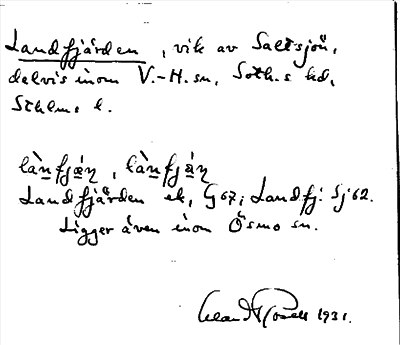 Landfjärden, vik av Saltsjön,
delvis inom V.-H. sn, Soth.s hd,
Sthlms l.
làn̲fjæ̲n, làn̲fjæ̲n
Landfjärden ek, G 67; Landfj. Sj 62.
Ligger även inom Ösmo sn.
1931.